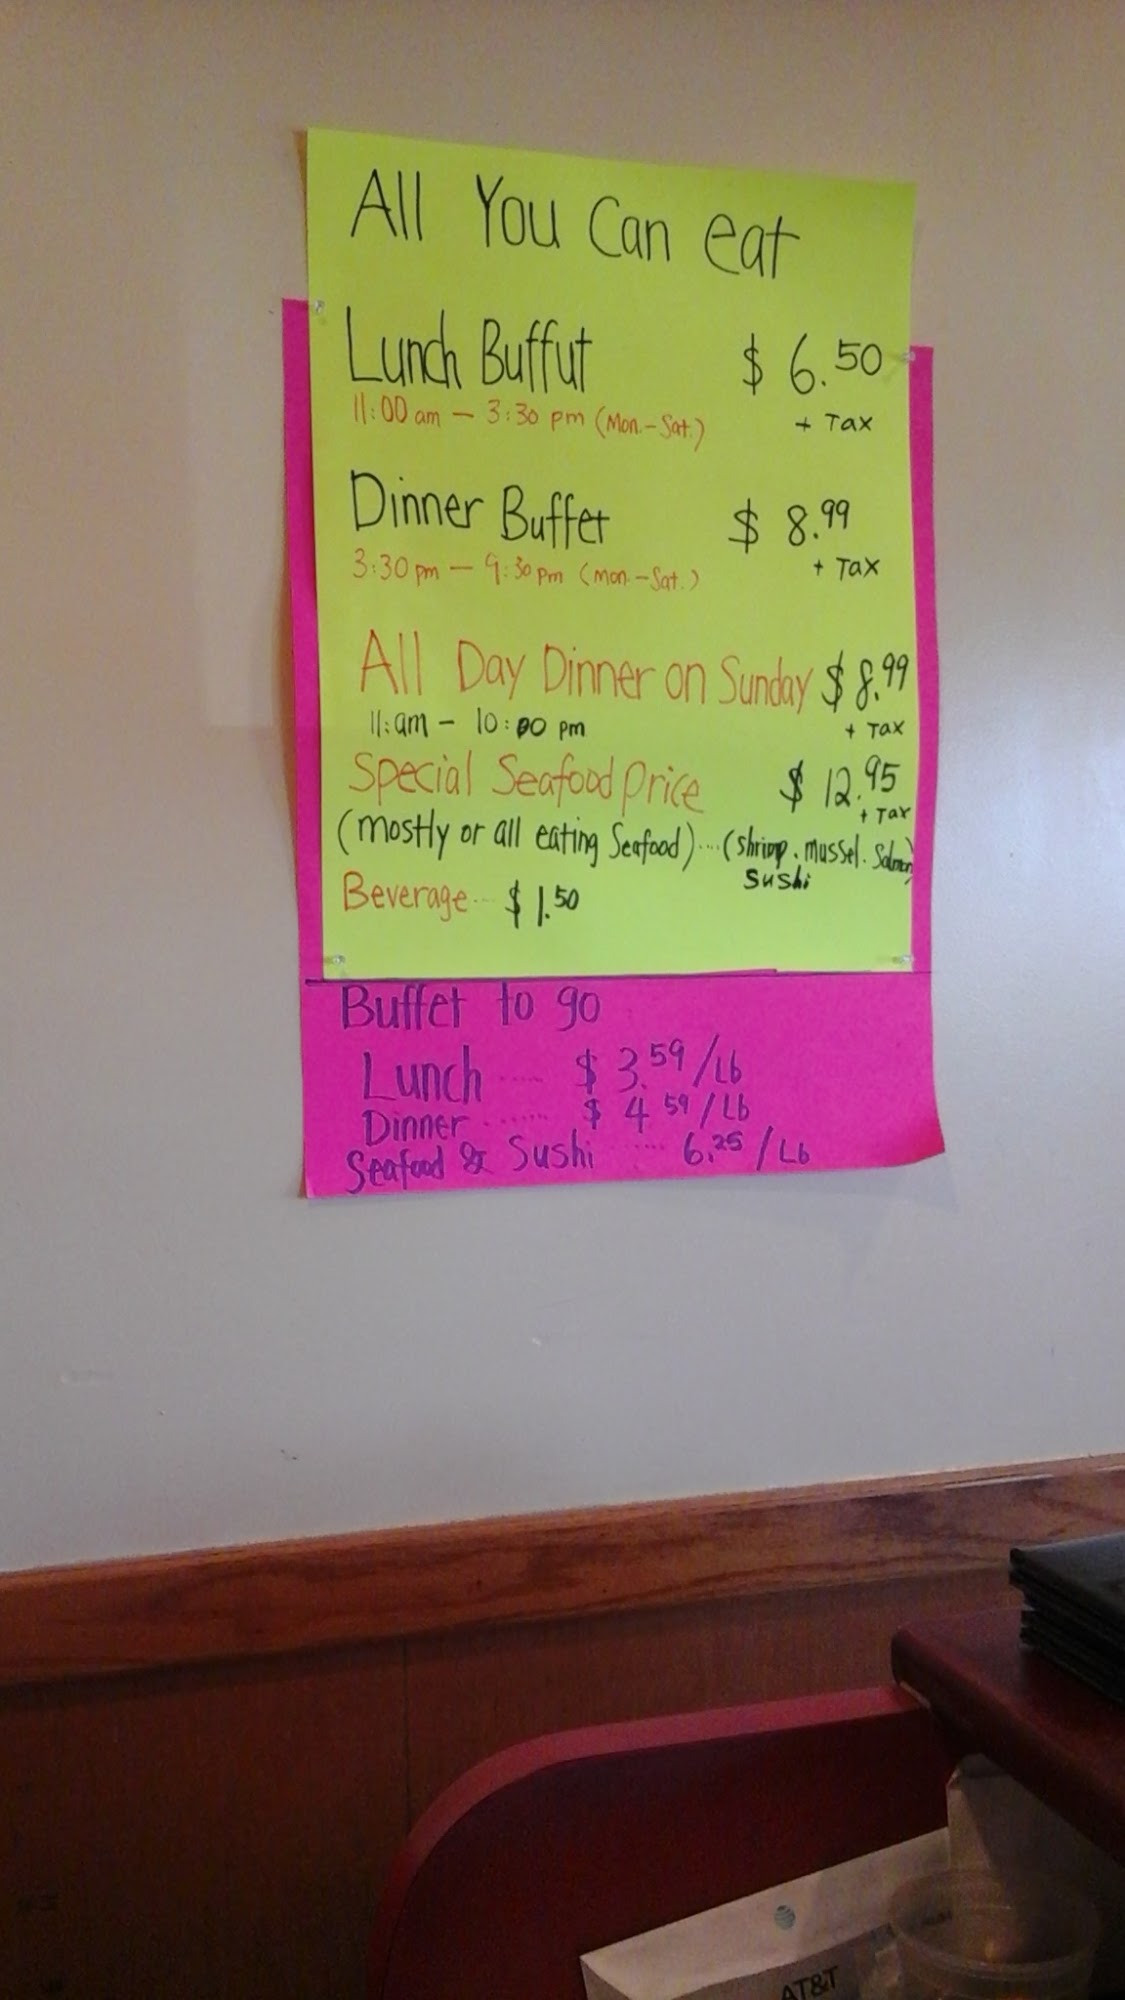 All You Can eat
Lunch Buffut $ 6.50
11:00 am - 3:30 pm (Mon.-Sat.) + Tax
Dinner Buffet $ 8.99
3:30 pm - 9:30 pm (Mon.-Sat.) + Tax
All Day Dinner on Sunday $ 8.99
11:am - 10:00 pm + Tax
Special Seafood Price $ 12.95
+ Tax
(mostly or all eating Seafood)....(shrimp. mussel. Salmon)
Sushi
Beverage... $ 1.50
Buffet to go
Lunch ..... $ 3.59/Lb
Dinner ...... $ 4.59/Lb
Seafood & Sushi .... 6.25/Lb
AT&T